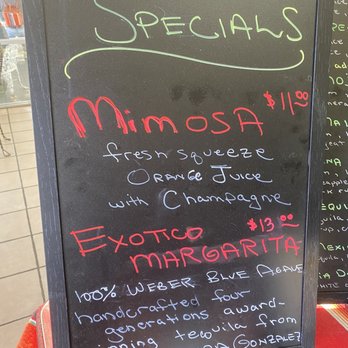 SPECIALS
Mimosa $11.00
fresh squeeze
ORANGE JUICE
with Champagne
EXOTICO $13.00
MARGARITA
100% WEBER BLUE AGAVE
handcrafted four
generations award-
tequila from
GONZALEZ